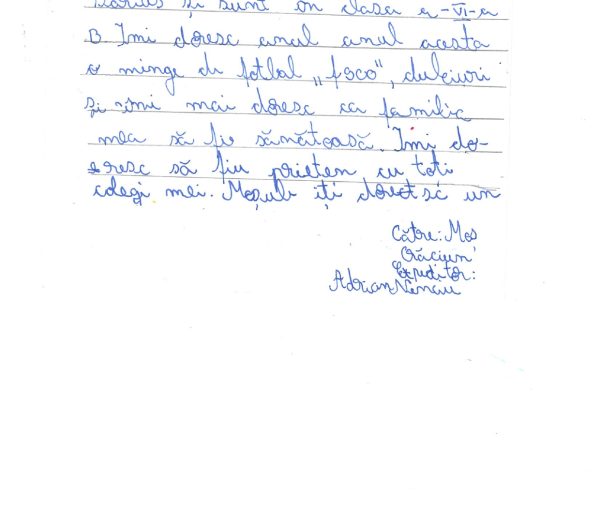 Darius și sunt în clasa a-VI-a
B. Imi doresc anul anul acesta
o minge de fotbal „foco”, dulciuri
și îmi mai doresc ca familia
mea să fie sănătoasă. Imi do-
resc să fiu prieten cu toti
colegi mei. Moșule îți un
Către: Mos
Crăciun
Expeditor:
Adrian